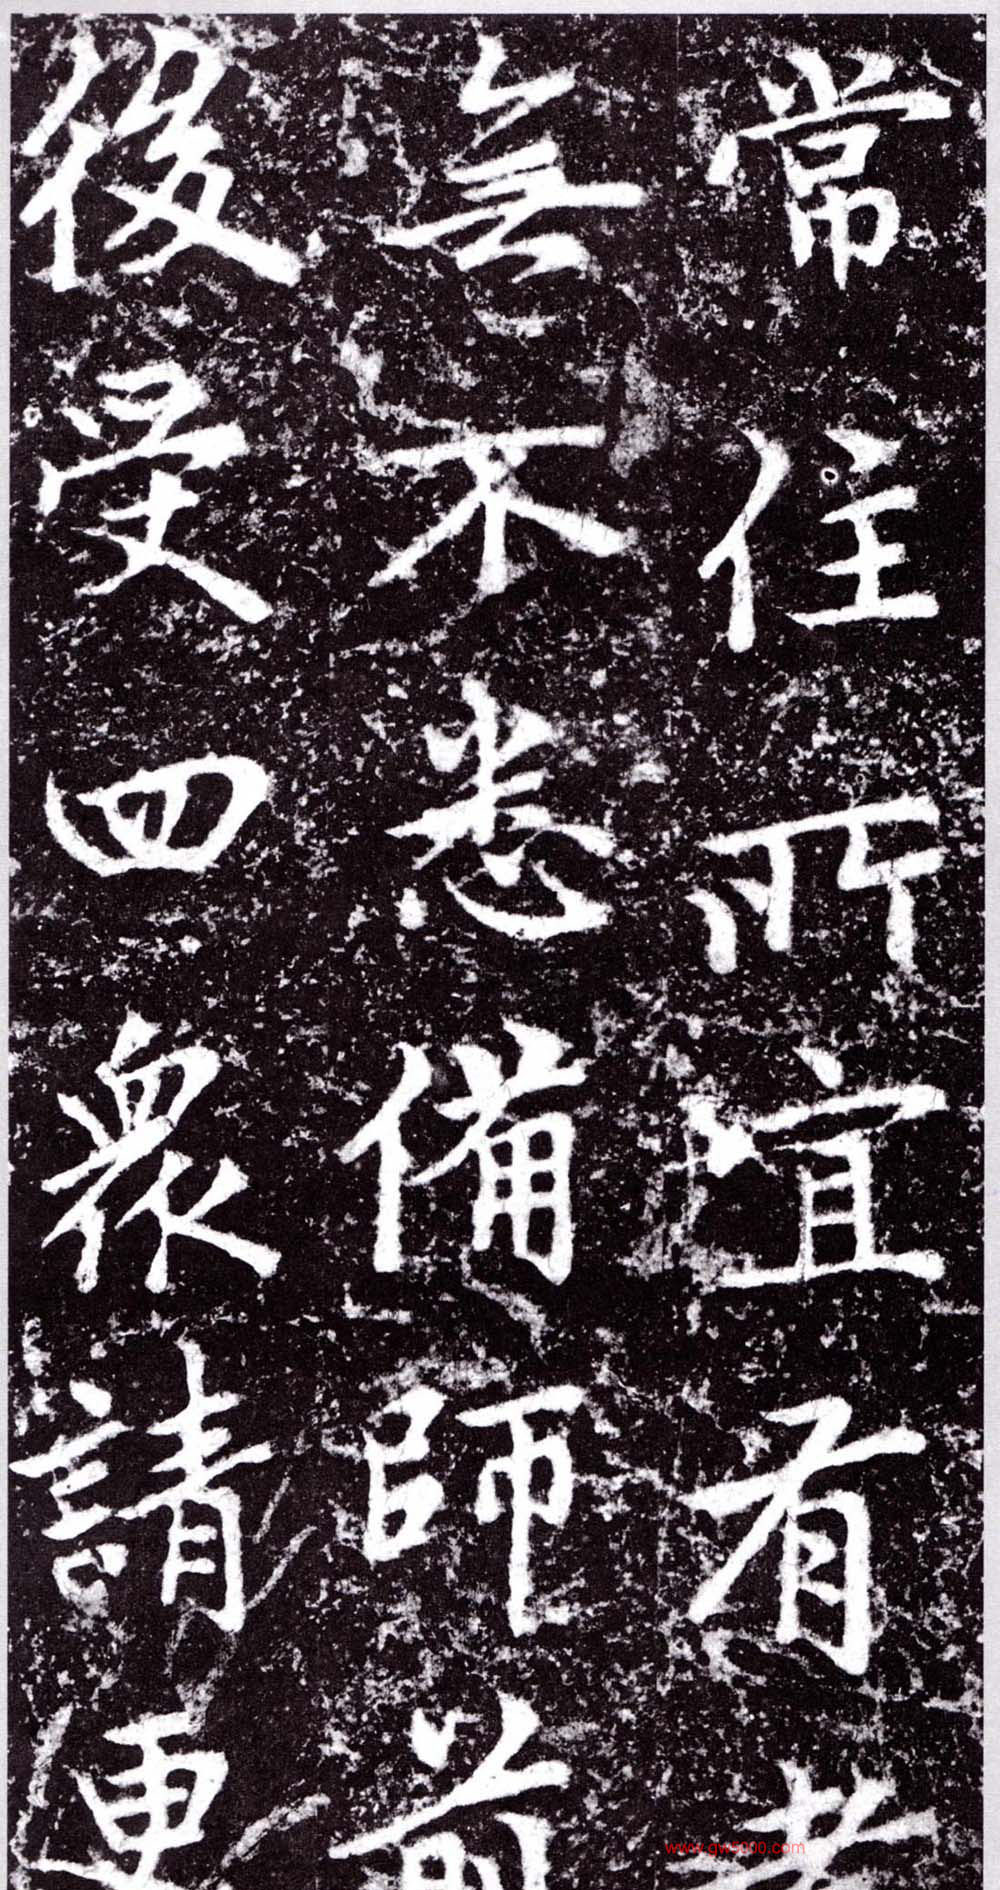 常住所宜有者
無不悉備師前
後受四眾請更
www.gw5800.com